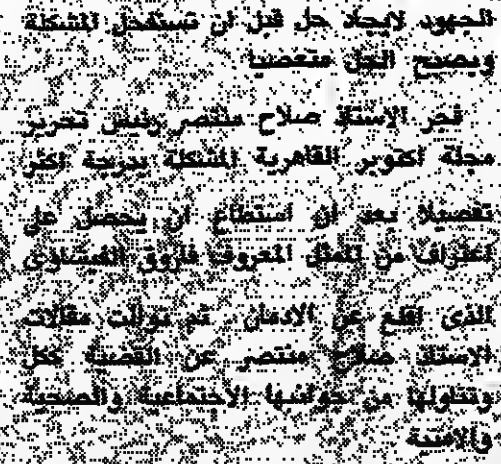 الجهود لايجاد حل قبل ان تستفحل المشكلة
ويصبح الحل متعصيا
فجر الاستاذ صلاح منتصر رئيس تحرير
مجلة اكتوبر القاهرية المشكلة بدرجة اكثر
تفصيلا بعد ان استطاع ان يحصل على
اعتراف من الممثل المعروف فاروق الفيشاوى
الذى اقلع عن الادمان ثم توالت مقالات
الاستاذ صلاح منتصر عن القضية ككل
وتناولها من جوانبها الاجتماعية والصحية
والامنية